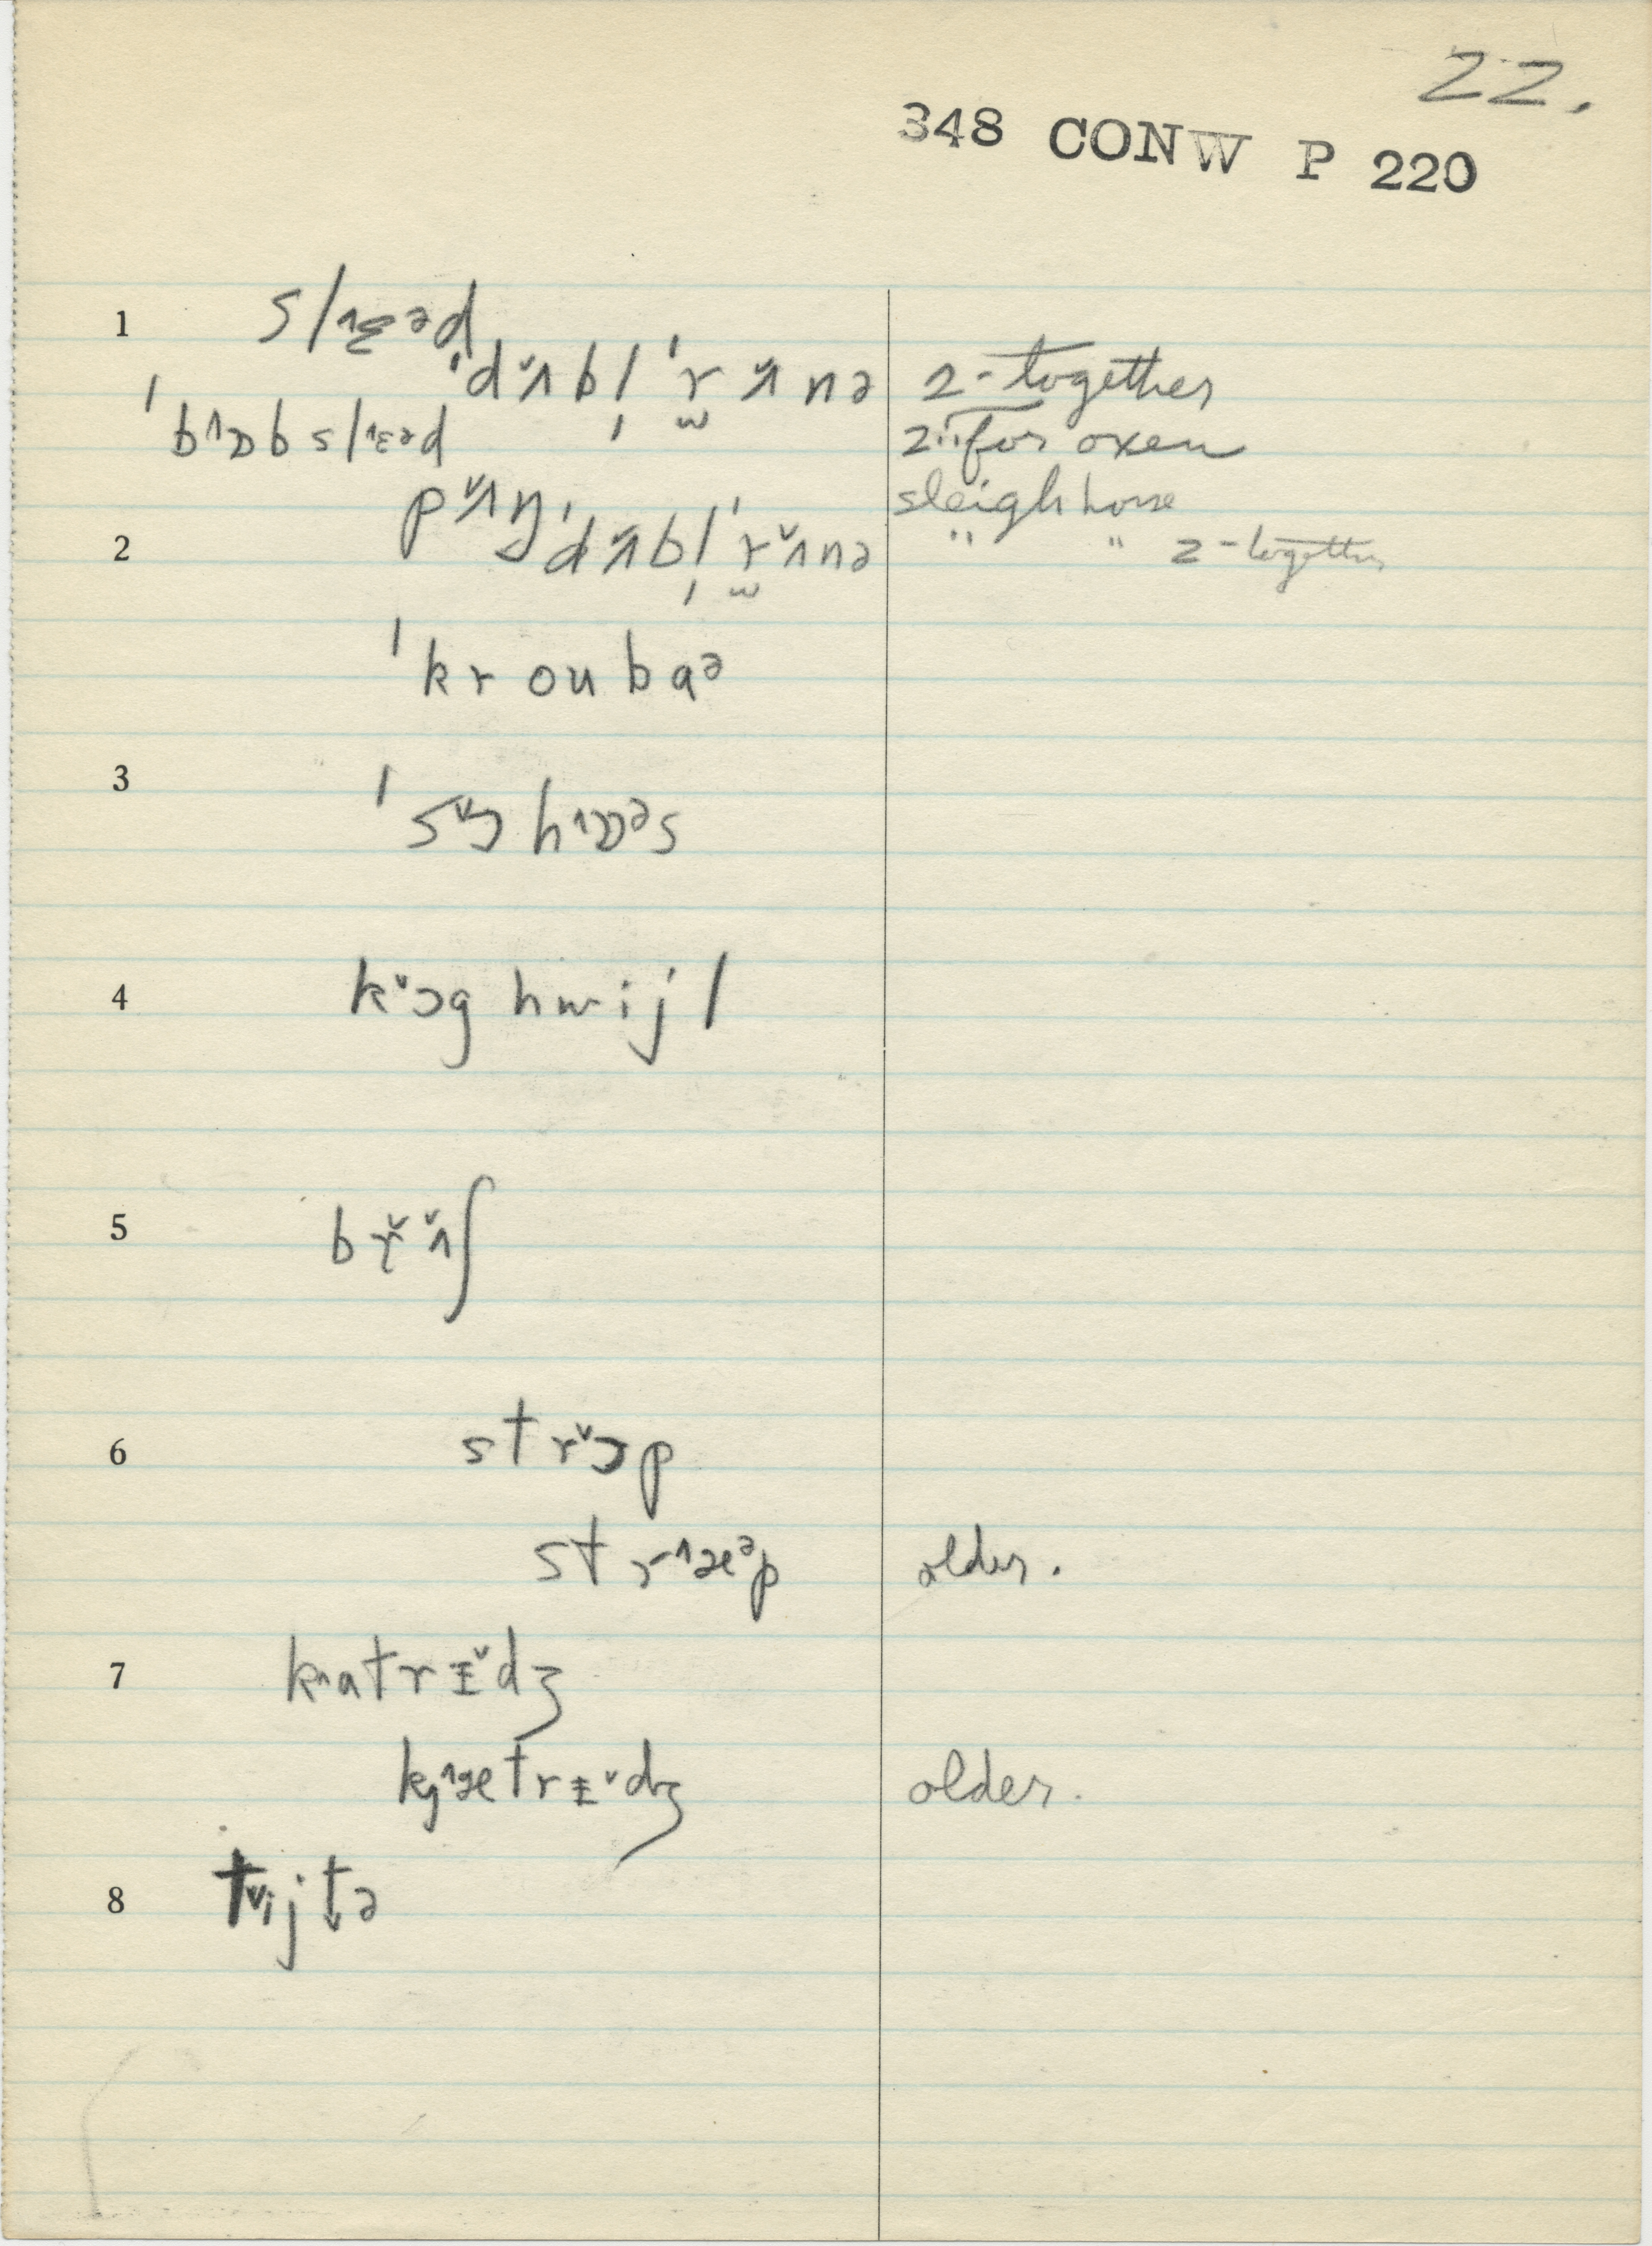 22.
348 CONW P 220
1 sl˄ɛəd
ˈdʌ˅bl̩ ˈr̫ʌ˅nə 2-together
ˈb˄ɒbsl˄ɛəd 2 " for oxen
pʌ˅ŋ sleigh horse
2 ˈdʌ˅bl̩ ˈr̫ʌ˅nə " " 2-together
ˈkroubaə
3 ˈs˅ɔh˄ɒəs
4 k˅ɔg hwijl
5 břʌ˅ʃ
6 str˅ɔp
str˄æəp older.
7 k˄atrɪ˅dʒ
kj˄ætrɪ˅dʒ older.
8 t˅ijt̬ə